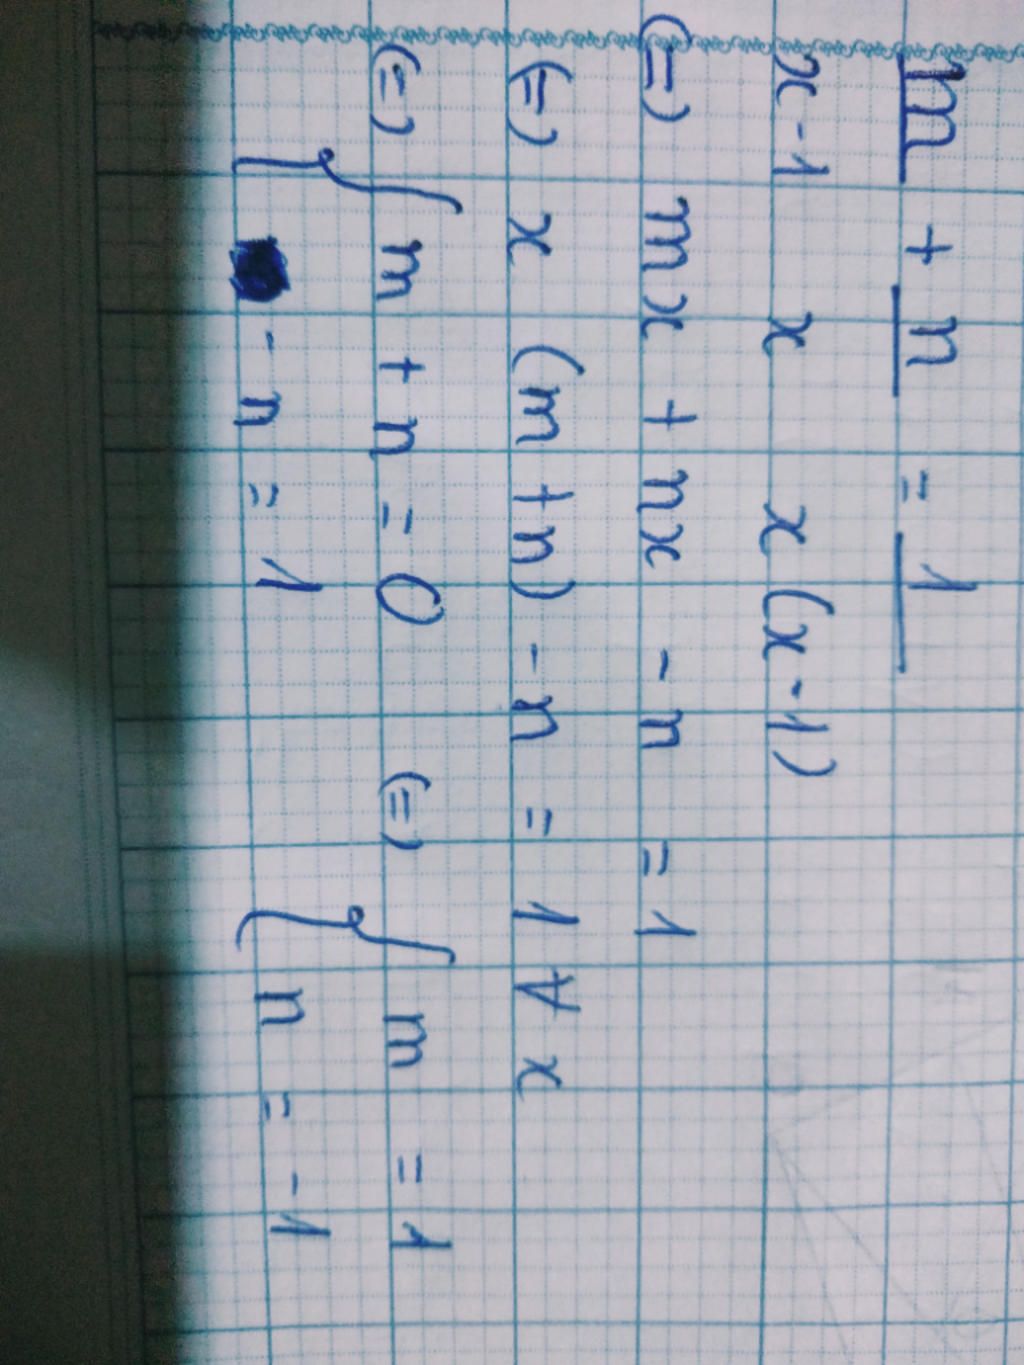 m + n = 1
x - 1 x x (x - 1)
(=) mx + nx - n = 1
(=) x (m + n) - n = 1 ∀ x
(=) { m + n = 0 (=) { m = 1
- n = 1 n = -1